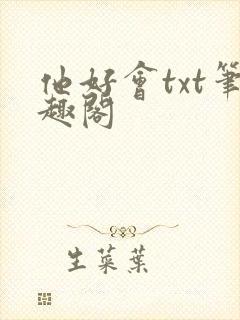 他好會txt筆
趣閣
生菜葉